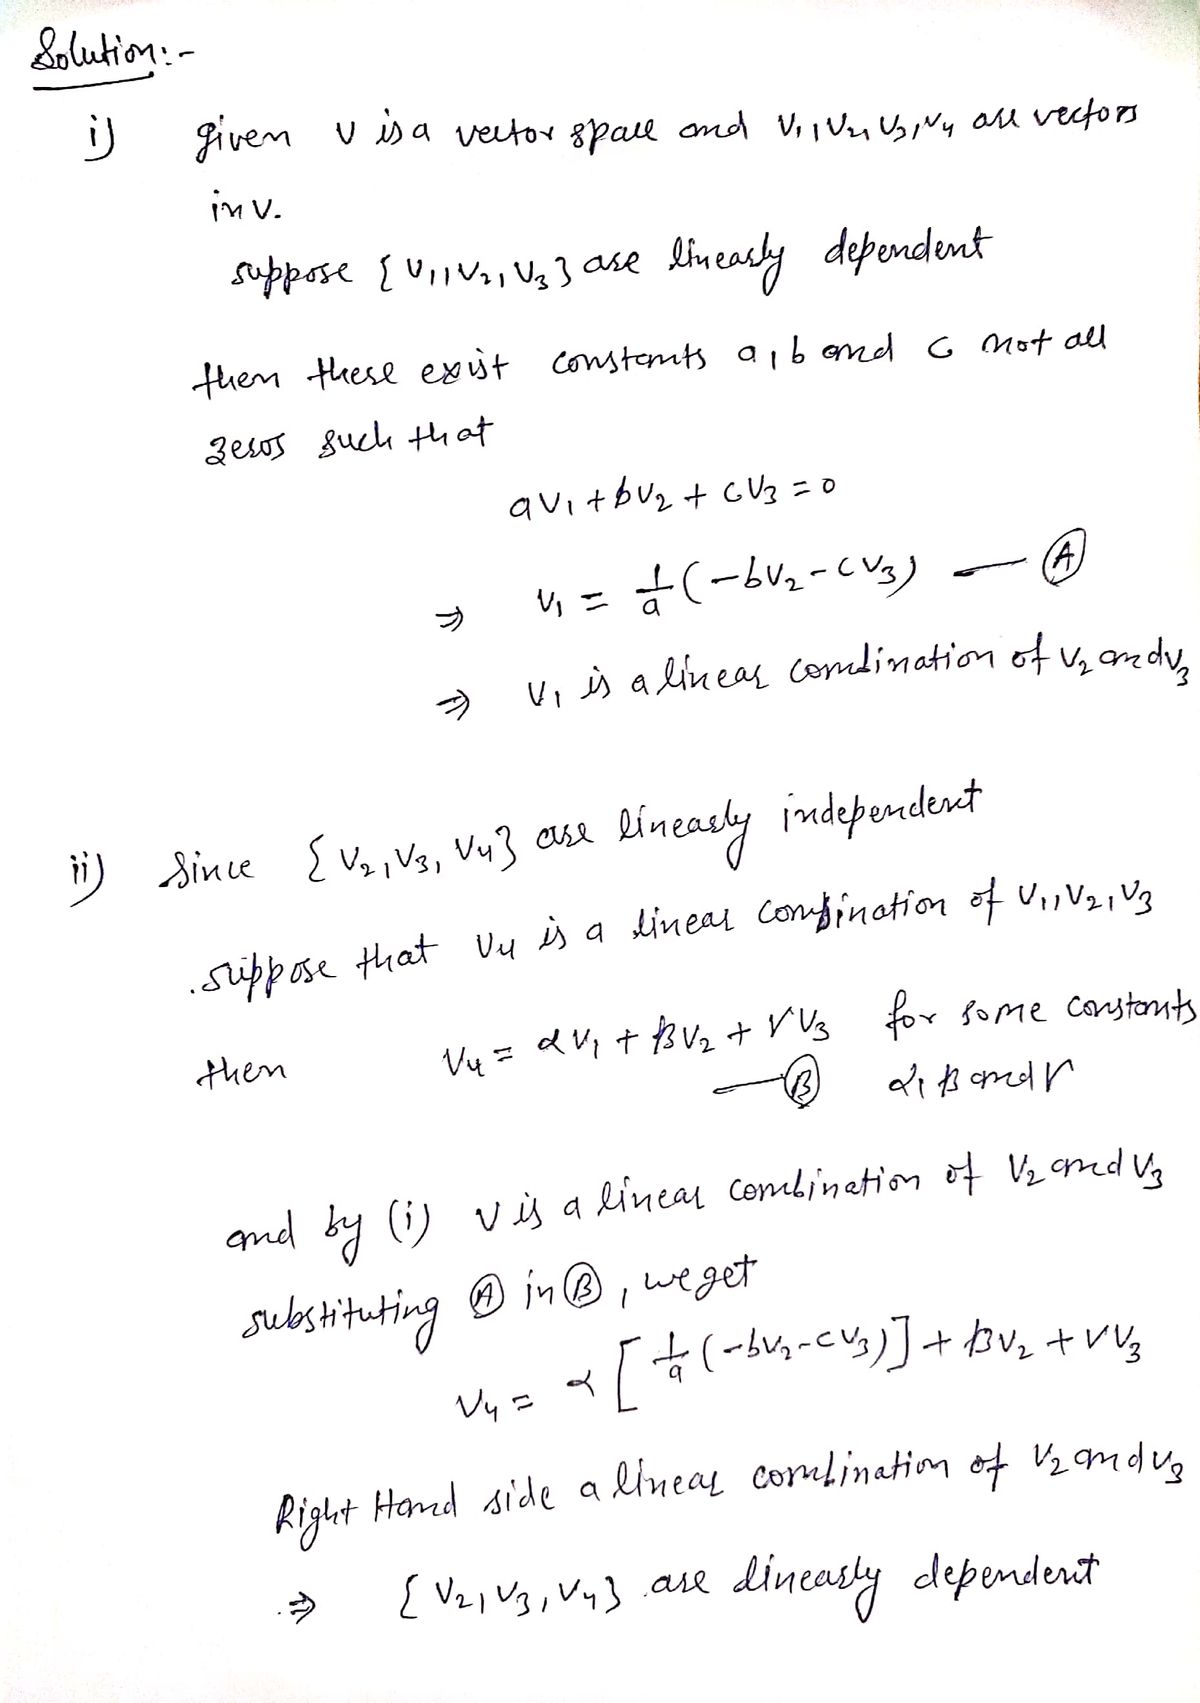 Solution:-
i) given V is a vector space and V₁, V₂, V₃, V₄ are vectors
in V.
suppose { V₁, V₂, V₃ } are linearly dependent
then there exist constants a, b and c not all
zeros such that
aV₁ + bV₂ + cV₃ = 0
⇒ V₁ = 1/a (-bV₂ - cV₃) — Ⓐ
⇒ V₁ is a linear combination of V₂ and V₃
ii) Since { V₂, V₃, V₄ } are linearly independent
. suppose that V₄ is a linear combination of V₁, V₂, V₃
then V₄ = αV₁ + βV₂ + γV₃ for some constants
— Ⓑ α, β and γ
and by (i) V is a linear combination of V₂ and V₃
substituting Ⓐ in Ⓑ, we get
V₄ = α [ 1/a (-bV₂ - cV₃) ] + βV₂ + γV₃
Right Hand side a linear combination of V₂ and V₃
⇒ { V₂, V₃, V₄ } are linearly dependent